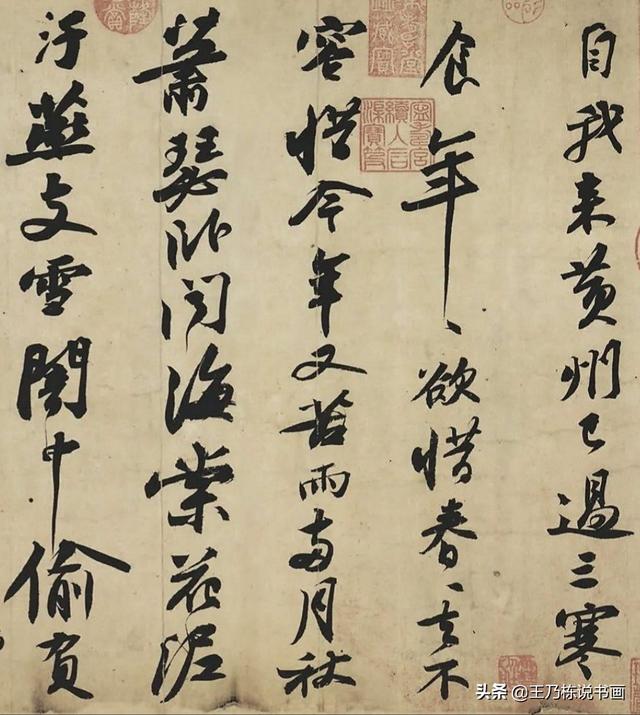 自我来黄州已過三寒
食年〻欲惜春〻去不
容惜今年又苦雨兩月秋
蕭瑟卧聞海棠花泥
汙燕支雪闇中偷負
头条 @王乃栋说书画